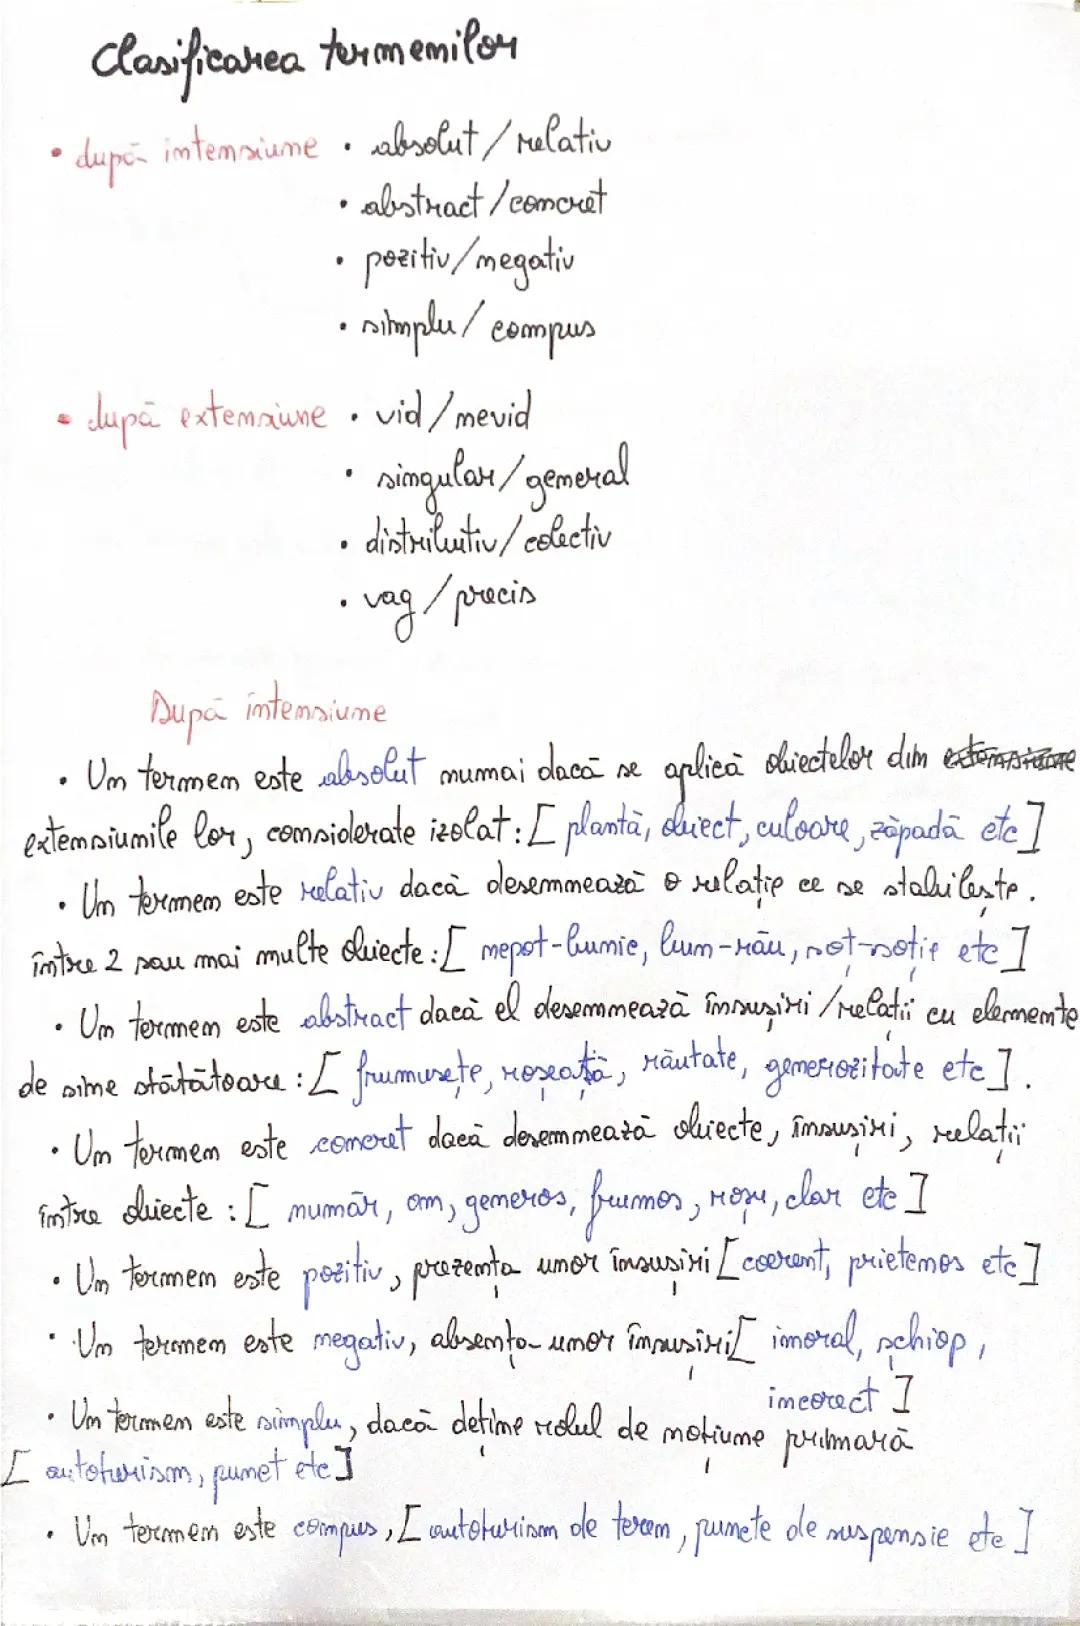 Clasificarea termenilor
• după intensiune • absolut/relativ
• abstract/concret
• pozitiv/negativ
• simplu/compus
• după extensiune • vid/nevid
• singular/general
• distributiv/colectiv
• vag/precis
După intensiune
• Un termen este absolut numai dacă se aplică obiectelor din extensiune
extensiunile lor, considerate izolat: [plantă, obiect, culoare, zăpadă etc]
• Un termen este relativ dacă desemnează o relație ce se stabilește.
între 2 sau mai multe obiecte: [nepot-bunic, bun-rău, soț-soție etc]
• Un termen este abstract dacă el desemnează însușiri/relații cu elemente
de sine stătătoare: [frumusețe, roșeață, răutate, generozitate etc].
• Un termen este concret dacă desemnează obiecte, însușiri, relații
între obiecte: [număr, om, generos, frumos, roșu, clar etc]
• Un termen este pozitiv, prezența unor însușiri [coerent, prietenos etc]
• Un termen este negativ, absența unor însușiri [imoral, șchiop,
incorect]
• Un termen este simplu, dacă deține rolul de noțiune primară
[autoturism, punct etc]
• Un termen este compus, [autoturism de teren, puncte de suspensie etc]